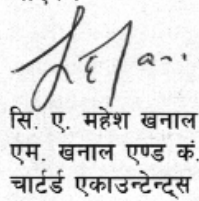 सि. ए. महेश खनाल
एम. खनाल एण्ड कं.
चार्टर्ड एकाउन्टेन्ट्स